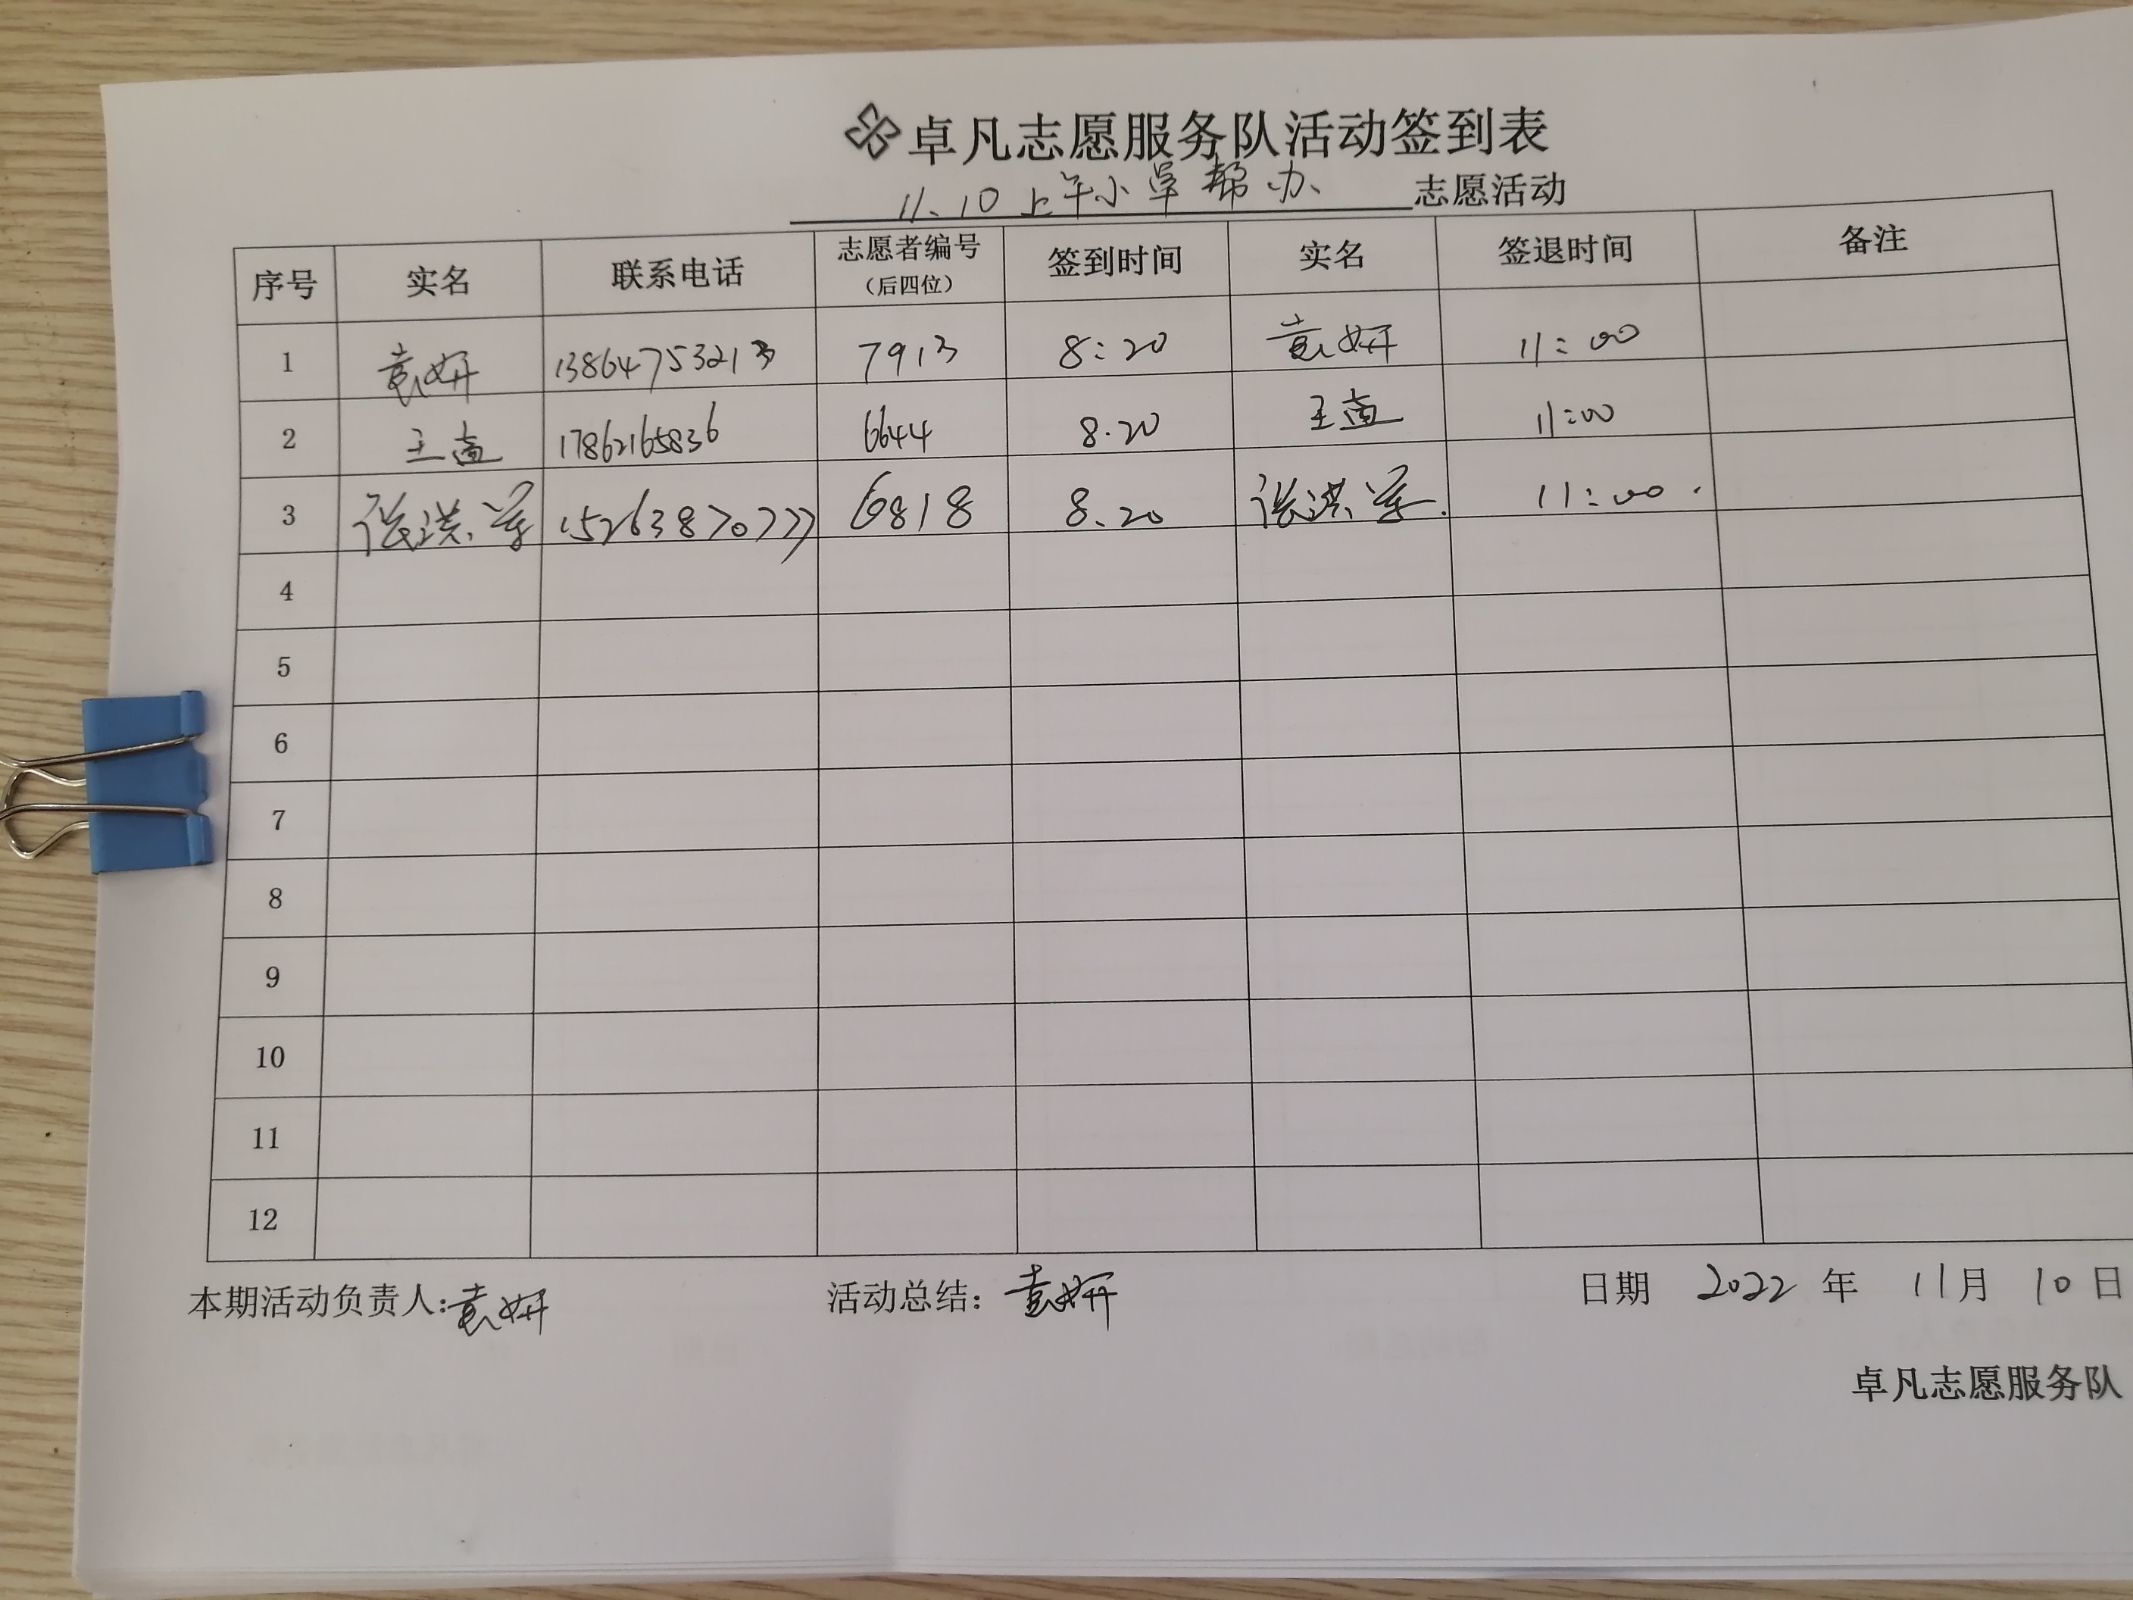 卓凡志愿服务队活动签到表
11.10上午小阜帮办 志愿活动
序号 实名 联系电话 志愿者编号(后四位) 签到时间 实名 签退时间 备注
1 袁妍 13864753213 7913 8:20 袁妍 11:00
2 王 17862165836 6644 8.20 王 11:00
3 张洪军 15263870777 6818 8.20 张洪军. 11:00.
4
5
6
7
8
9
10
11
12
本期活动负责人:袁妍 活动总结：袁妍 日期 2022 年 11月 10日
卓凡志愿服务队